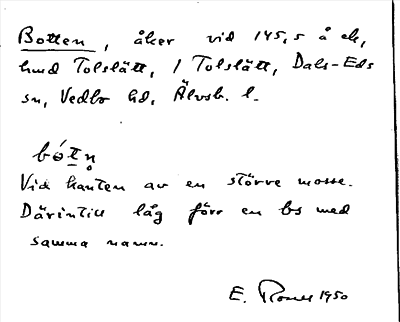 Botten, åker vid 145,5 å ek,
hmd Tolslätt, 1 Tolslätt, Dals-Eds
sn, Vedbo hd, Älvsb. l.
bótn̥
Vid kanten av en större mosse.
Därintill låg förr en bs med
samma namn.
E. 1950